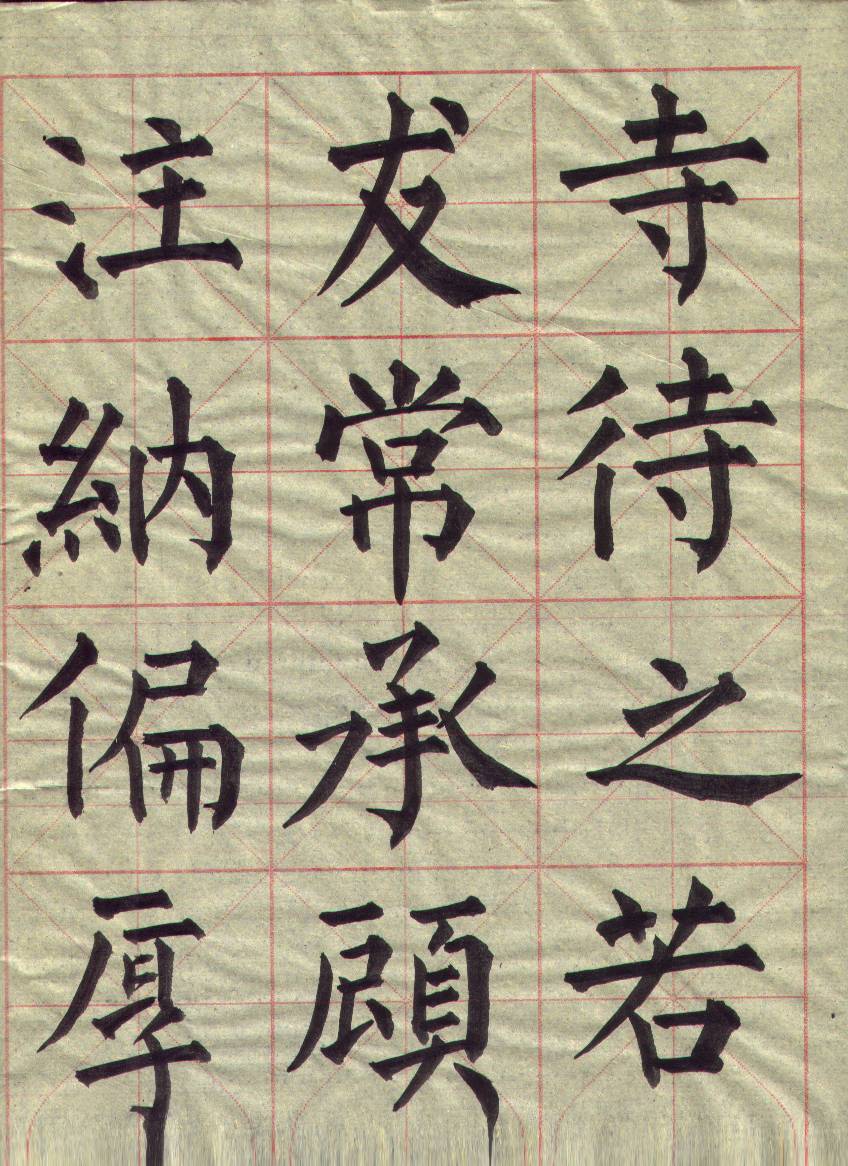 寺待之若
友常承顧
注納偏厚